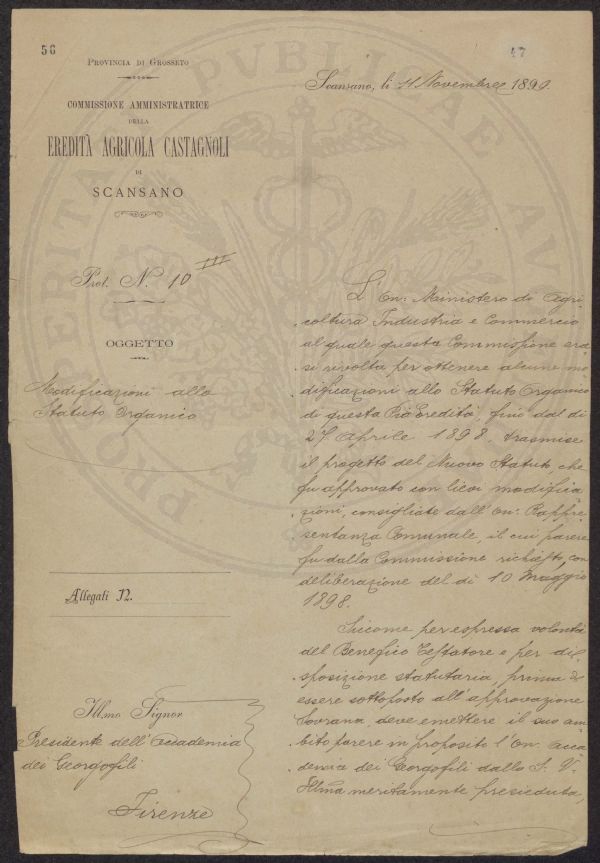 56
47
PROVINCIA DI GROSSETO
COMMISSIONE AMMINISTRATRICE
DELLA
EREDITÀ AGRICOLA CASTAGNOLI
DI
SCANSANO
Scansano, li 11 Novembre 1899.
Prot. N. 10 III
OGGETTO
Modificazioni allo
Statuto Organico
Allegati N.
Ill.mo Signor
Presidente dell'Accademia
dei Georgofili
Firenze
L'On: Ministero di Agri-
coltura Industria e Commercio
al quale questa Commissione era
si rivolta per ottenere alcune mo
dificazioni allo Statuto Organico
di questa Pia Eredità, fino dal dì
27 Aprile 1898 trasmise
il progetto del Nuovo Statuto, che
fu approvato con lievi modifica
zioni, consigliate dall'On: Rappre
sentanza Comunale, il cui parere
fu dalla Commissione richiesto, con
deliberazione del dì 10 Maggio
1898.
Siccome per espressa volontà
del Benefico Testatore e per di-
sposizione statutaria, prima di
essere sottoposto all'approvazione
Sovrana, deve emettere il suo am
bito parere in proposito l'On. Acca
demia dei Georgofili dalla S. V.
Ill.ma meritamente presieduta,
PROSPERITATI PVBLICAE AV